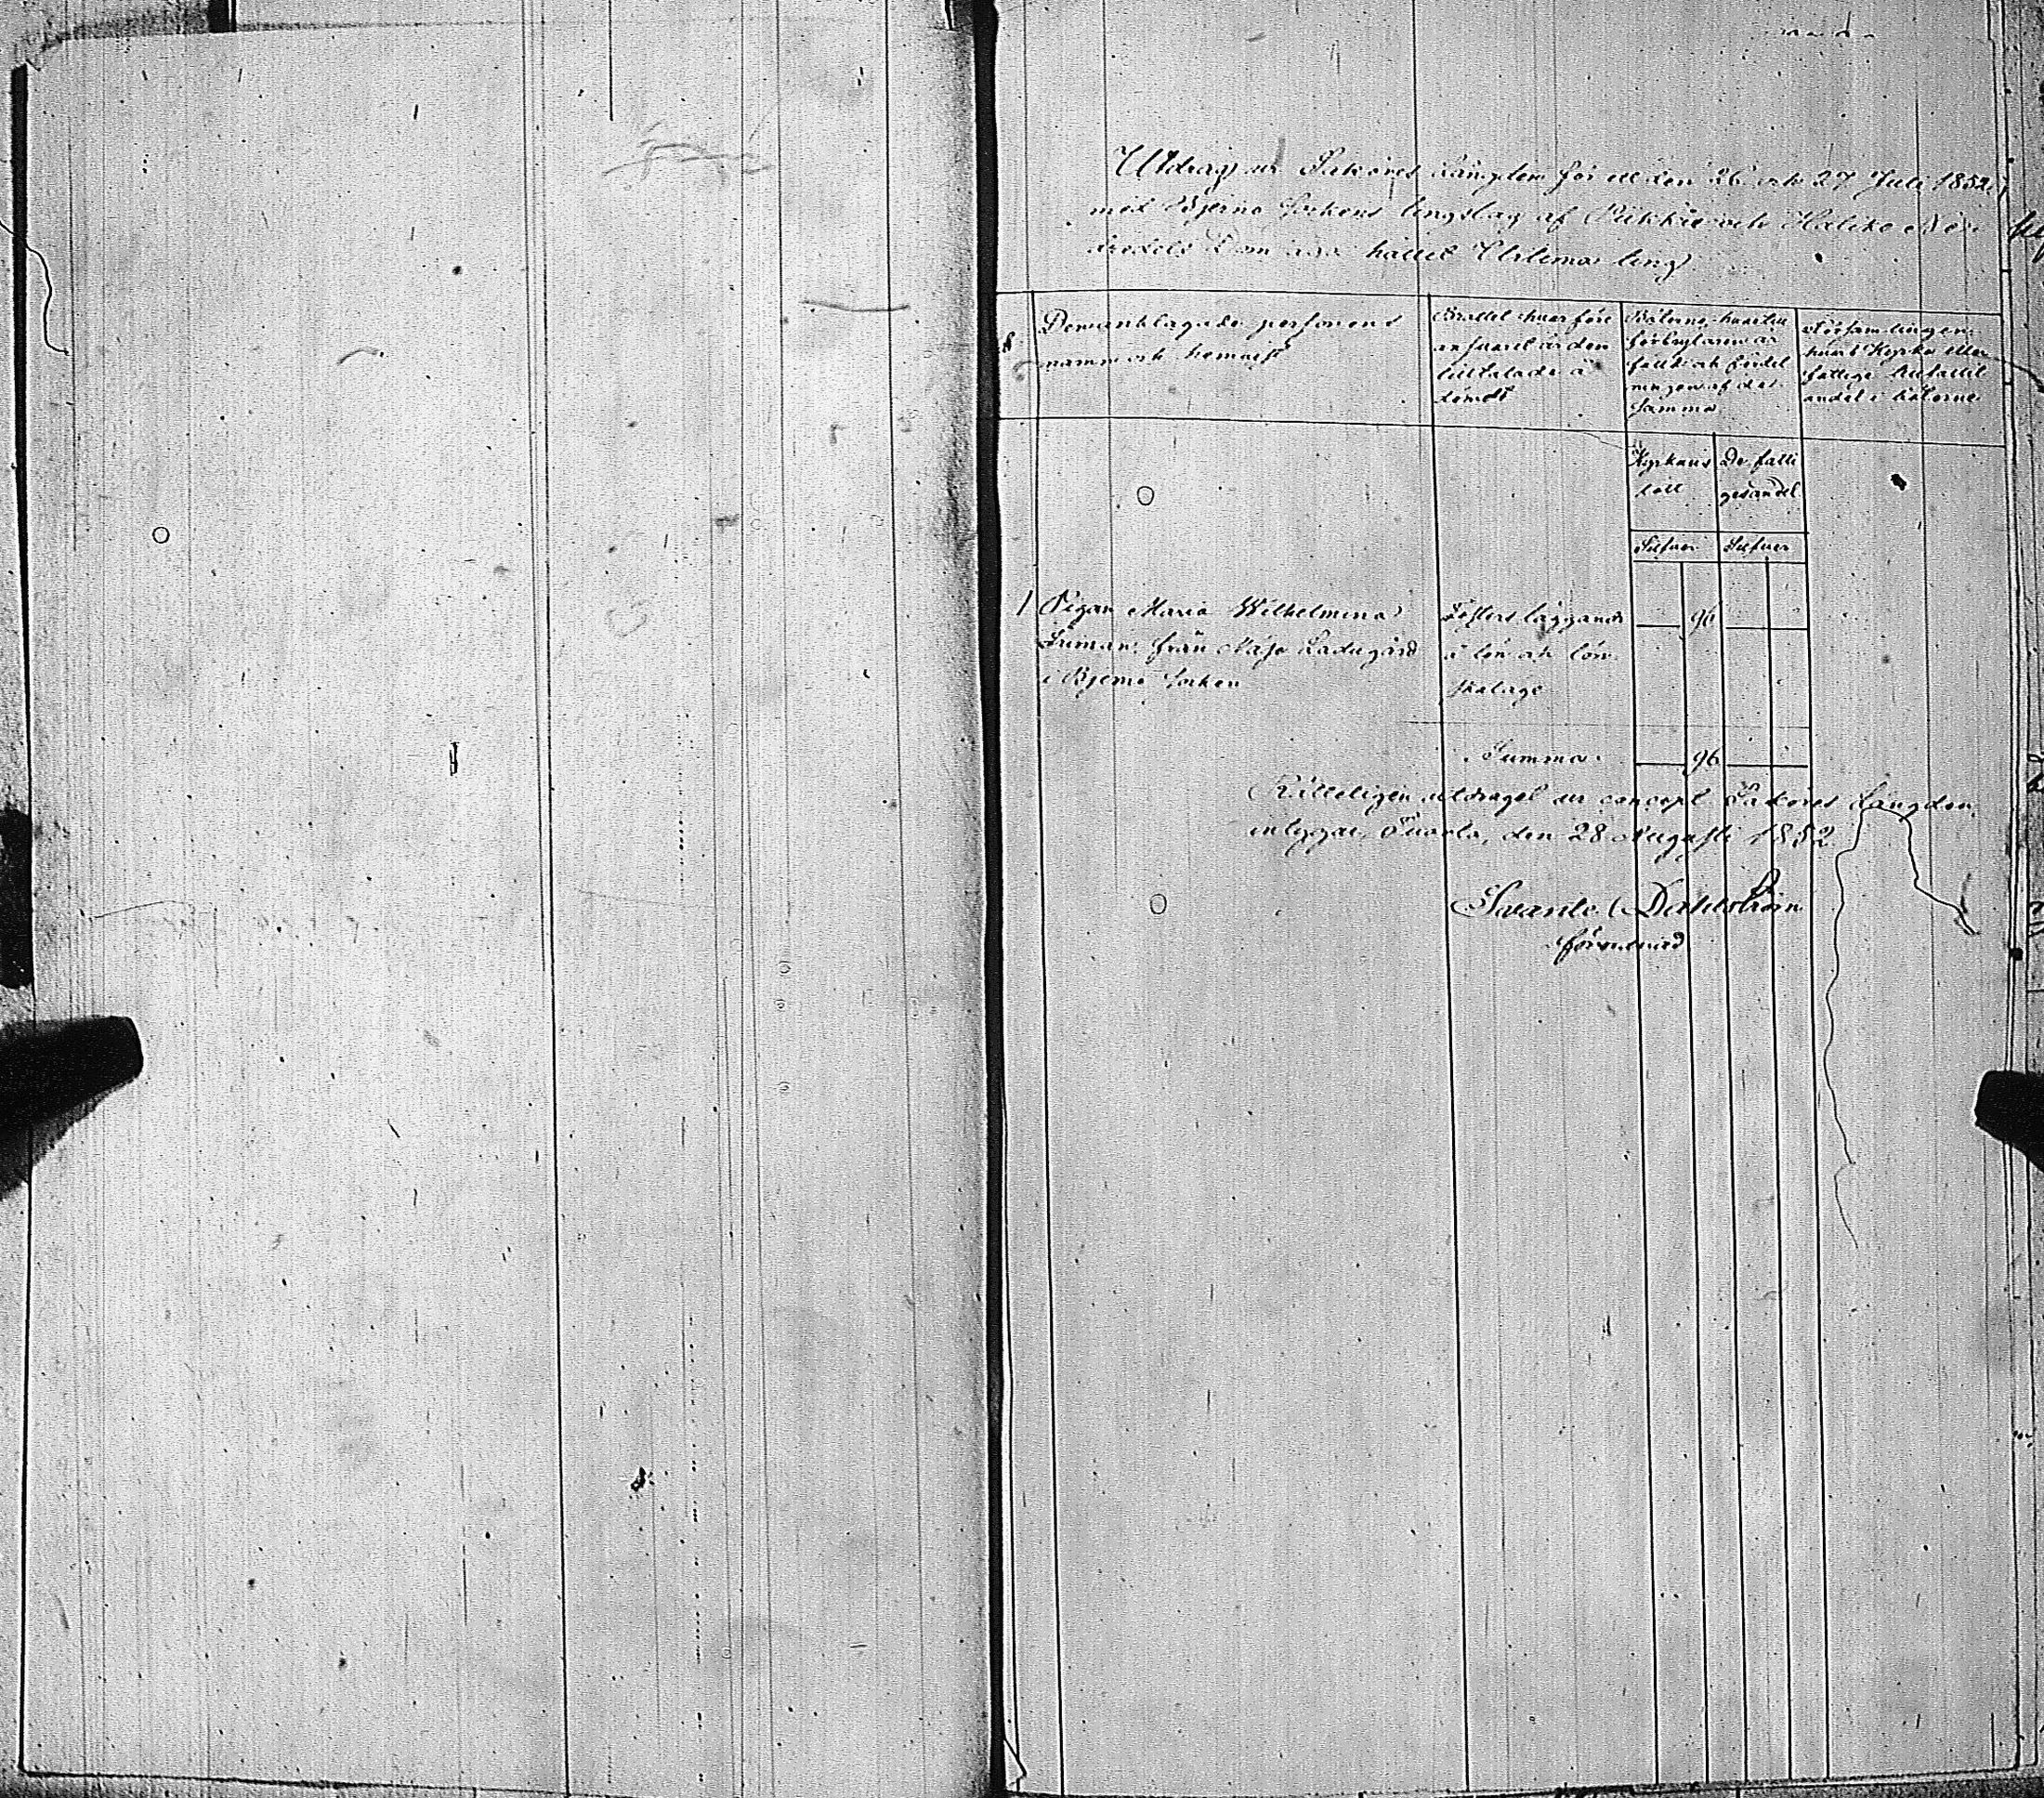 Utdrag ur Saköres Längden för ett den 26 och 27 Juli 1852
med Bjerno Sockens tingslag af Pikkie och Haliko
dels Domsaga hållet Urtima ting
Den anklagade personens
namn och hemvist
Brottet hvarföre
ansvaret är den
tilltalade å
dömdt
Böterne, hvartill
förbrytaren är
fälld och fördel
ningen af de
samma
Församlingen
hvars Kyrka eller
fattige tillfallit
andel i böterne
Kyrkans
lott
De fatti
gas andel
Silfver
Silfver
1 Pigan Maria Wilhelmina
från Näse Ladugård
i Bjerno Socken
Fosters läggande
å lön och löns
kaläge
96
Summa
96
Rätteligen utdraget ur concept Saköres Längden
intygar, den 28 Augusti 1852
Svante Dahlström
förordnad